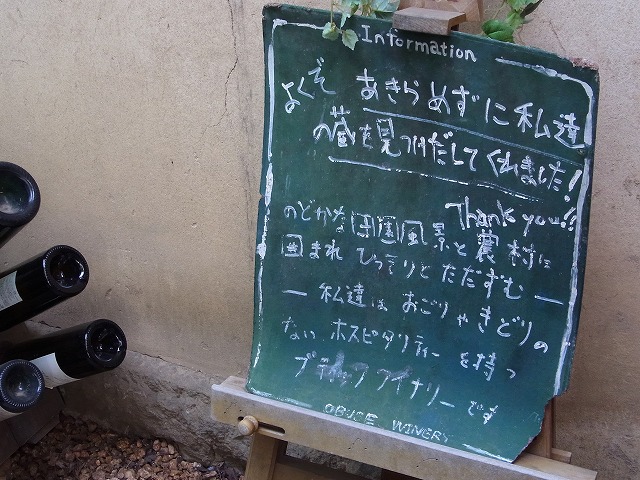 Information
よくぞ あきらめずに私達
の蔵を見つけだしてくれました!
Thank you!!
のどかな田園風景と農村に
囲まれひっそりとたたずむ
— 私達は おごりやきどりの
ない ホスピタリティー を持つ
ブティックワイナリーです
OBUSE WINERY